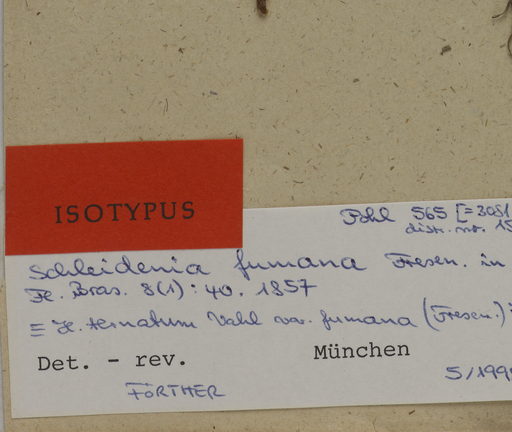 ISOTYPUS
Pohl 565 [=3081
distr. no. 15
Schleidenia fumana Fresen. in
Fl. Bras. 8(1): 40. 1857
≡ H. ternatum Vahl var. fumana (Fresen.)
Det. - rev. München
FÖRTHER 5/199